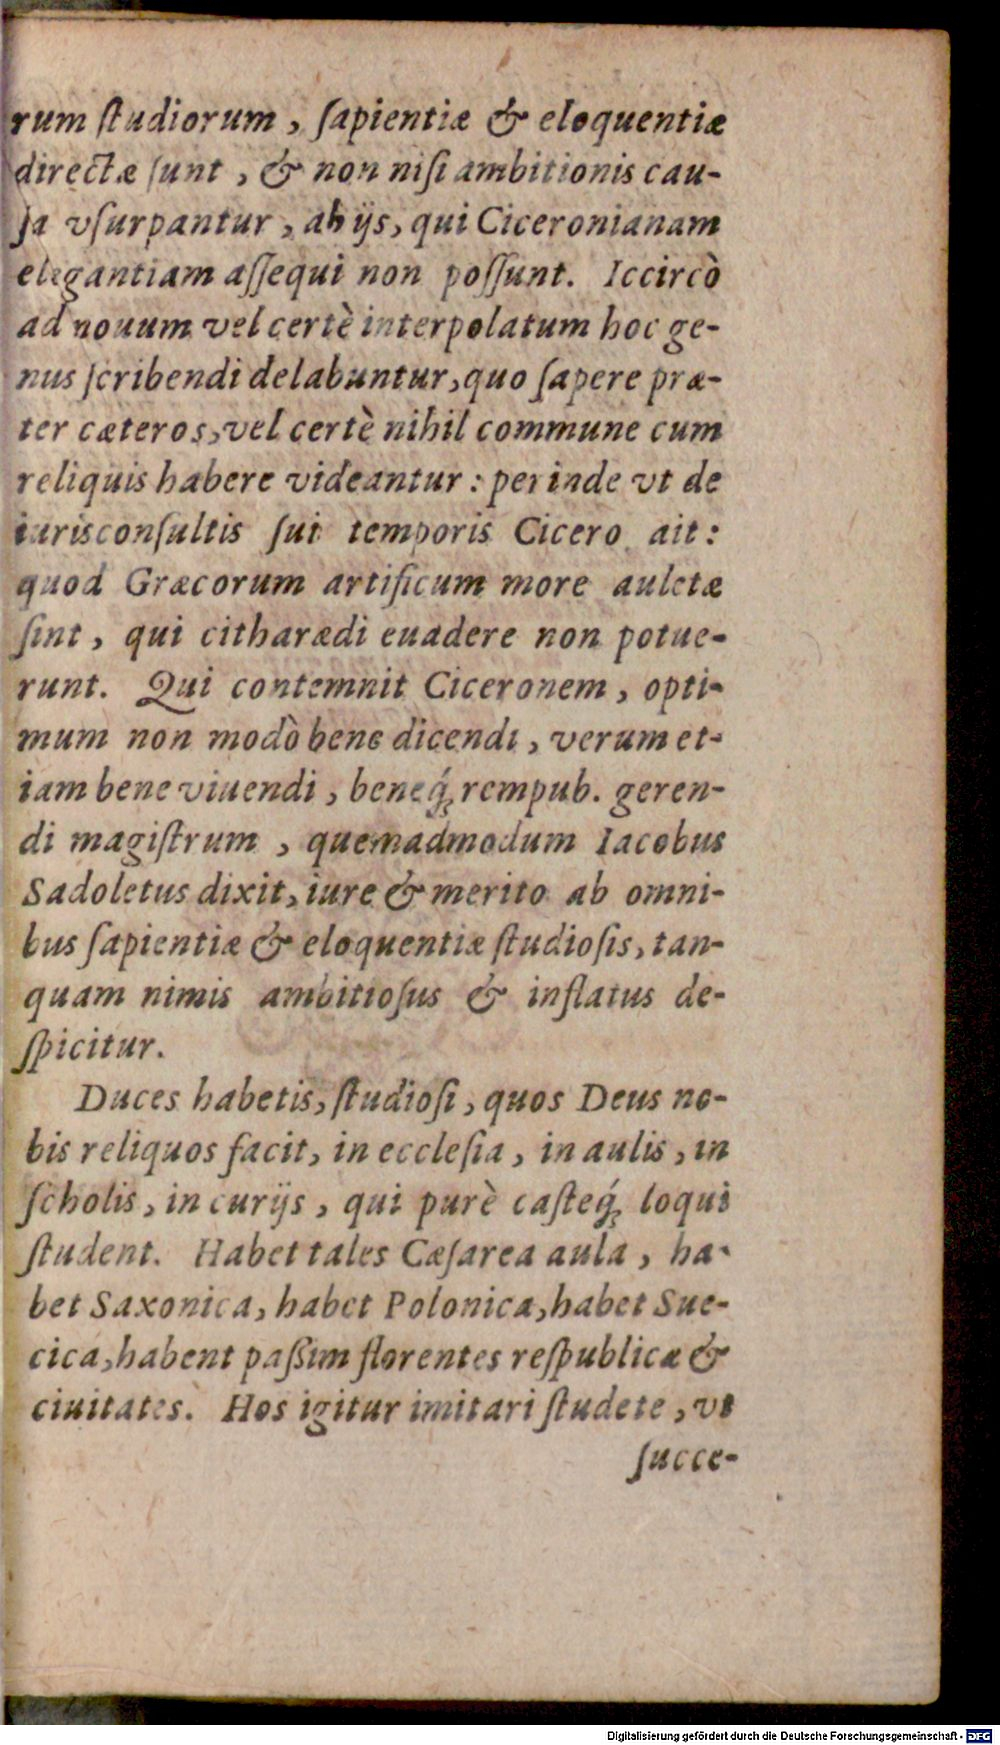 rum ſtudiorum, ſapientiæ & eloquentiæ
directæ ſunt, & non niſi ambitionis cau-
ſa vſurpantur, ab ijs, qui Ciceronianam
elegantiam aſſequi non poſſunt. Iccircò
ad nouum vel certè interpolatum hoc ge-
nus ſcribendi delabuntur, quo ſapere præ-
ter cæteros, vel certè nihil commune cum
reliquis habere videantur: perinde vt de
iurisconſultis ſui temporis Cicero ait:
quod Græcorum artificum more auletæ
ſint, qui citharædi euadere non potue-
runt. Qui contemnit Ciceronem, opti-
mum non modò bene dicendi, verum et-
iam bene viuendi, beneq́; rempub. geren-
di magiſtrum, quemadmodum Iacobus
Sadoletus dixit, iure & merito ab omni-
bus ſapientiæ & eloquentiæ ſtudioſis, tan-
quam nimis ambitioſus & inflatus de-
ſpicitur.
Duces habetis, ſtudioſi, quos Deus no-
bis reliquos facit, in eccleſia, in aulis, in
ſcholis, in curijs, qui purè caſteq́; loqui
ſtudent. Habet tales Cæſarea aula, ha-
bet Saxonica, habet Polonica, habet Sue-
cica, habent paßim florentes reſpublicæ &
ciuitates. Hos igitur imitari ſtudete, vt
ſucce-
Digitalisierung gefördert durch die Deutsche Forschungsgemeinschaft - DFG